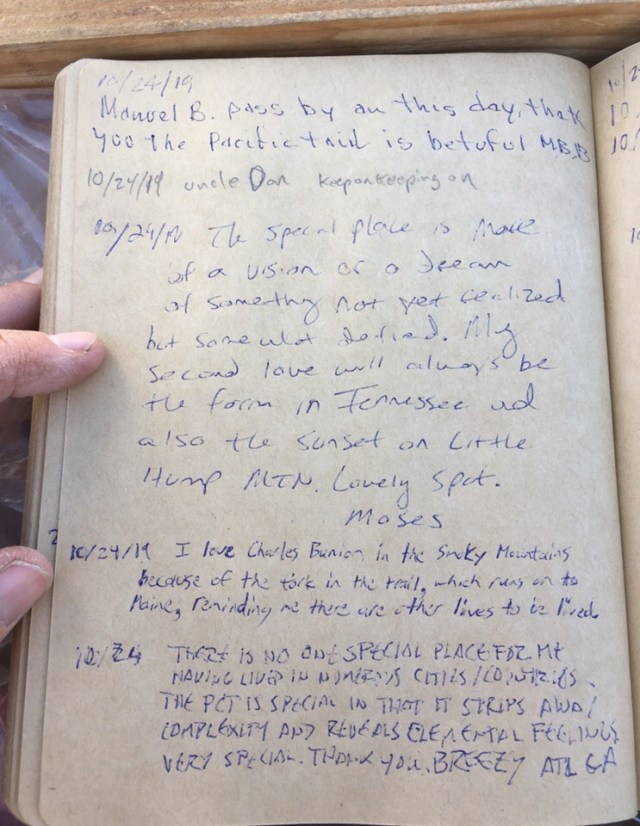 10/24/19
Manuel B. pass by on this day, thak
you the Pacific trail is betuful M.B.B
10/24/19 uncle Dan keeponkeeping on
10/24/19 The special place is more
of a vision or a dream
of something not yet realized
but somewhat defined. My
second love will always be
the farm in Tennessee and
also the sunset on Little
Hump MTN. Lovely Spot.
Moses
10/24/19 I love Charles Bunion in the Smoky Mountains
because of the fork in the trail, which runs on to
Maine, reminding me there are other lives to be lived
10/24 THERE IS NO ONE SPECIAL PLACE FOR ME
HAVING LIVED IN NUMEROUS CITIES/COUNTRIES.
THE PCT IS SPECIAL IN THAT IT STRIPS AWAY
COMPLEXITY AND REVEALS ELEMENTAL FEELINGS
VERY SPECIAL. THANK YOU. BREEZY ATL GA